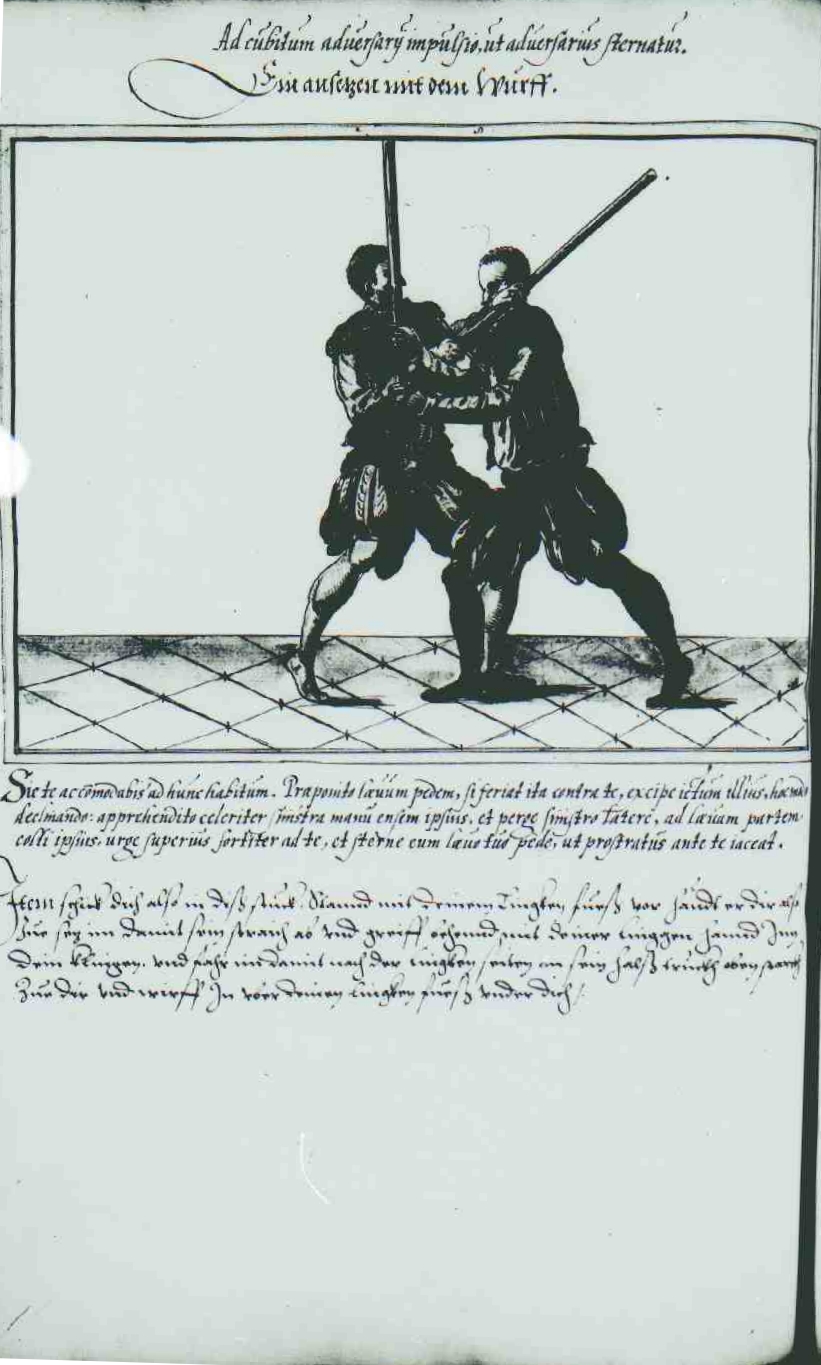 Ad cubitum adversarij impulsio, ut adversarius sternatur.
Ein ansetzen mit dem Wurff.
Sic te accomodabis ad hunc habitum. Praponito lævum pedem, si feriat ita contra te, excipe ictum illius, hoc modo
declinando: apprehendito celeriter sinistra manu ensem ipsius, et perge sinistro latere, ad lævam partem
colli ipsius, urge superius fortiter ad te, et sterne eum lævo tuo pede, ut prostratus ante te iaceat.
Item schick dich also in diß stuck. Stannd mit deinem Lingken fuess vor haudt er dir also
Zue setz im damit sein straich ab vnd greiff behennd mit deiner linggen hannd Inn
sein klingen. vnd fahr im damit nach der lingken seiten an sein halß truckh oben starck
Zue dir vnd wirff In vber deinen lingken fuess vnder dich